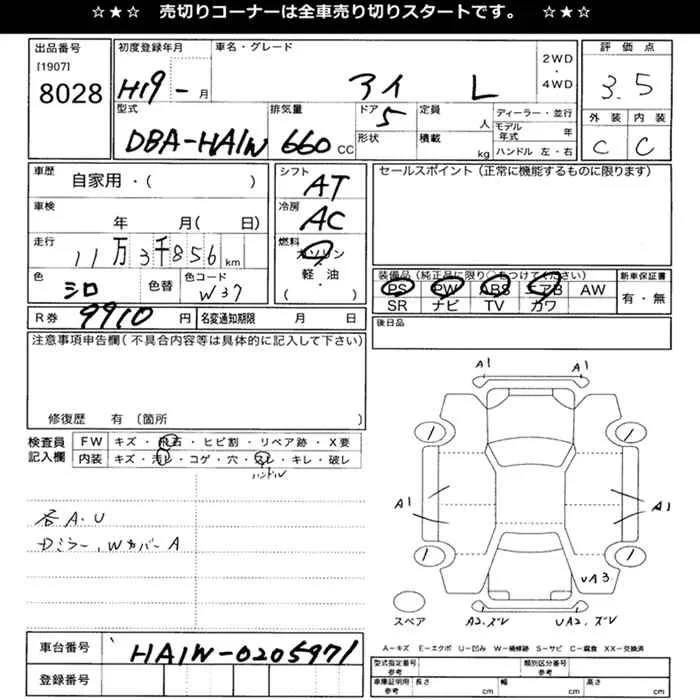 ☆★☆ 売切りコーナーは全車売り切りスタートです。 ☆★☆
出品番号
[1907]
8028
初度登録年月
H19 - 月
車名・グレード
アイ L
2WD
・
4WD
評価点
3.5
外装 内装
C C
型式
DBA-HA1W
排気量
660 CC
ドア
5
形状
定員
人
積載
kg
ディーラー・並行
モデル年式 年
ハンドル 左・右
車歴
自家用・( )
車検
年 月( 日)
走行
11万3千856 km
色
シロ
色替
色コード
W37
シフト
AT
冷房
AC
燃料
ガソリン
軽・油
( ・ )
セールスポイント(正常に機能するものに限ります)
装備品(純正品に限り○をつけてください)
PS PW ABS エアB AW
SR ナビ TV カワ
新車保証書
有・無
R券 9910 円
名変通知期限 月 日
後日品
注意事項申告欄(不具合内容等は具体的に記入して下さい)
修復歴 有 〔箇所 〕
検査員
記入欄
FW キズ・飛石・ヒビ割・リペア跡・X要
内装 キズ・汚レ・コゲ・穴・スレ・キレ・破レ
ハンドル
各A.U
Dミラー、WカバーA
A1 A1
1 1
A1 A1
1 1
UA3
スペア
A2.ズレ UA2.ズレ
A−キズ E−エクボ U−凹み W−補修跡 S−サビ C−腐食 XX−交換済
車台番号
HA1W-0205971
登録番号
型式指定番号
参考
類別区分番号
参考
車庫証明用
参考
長さ cm 幅 cm 高さ cm